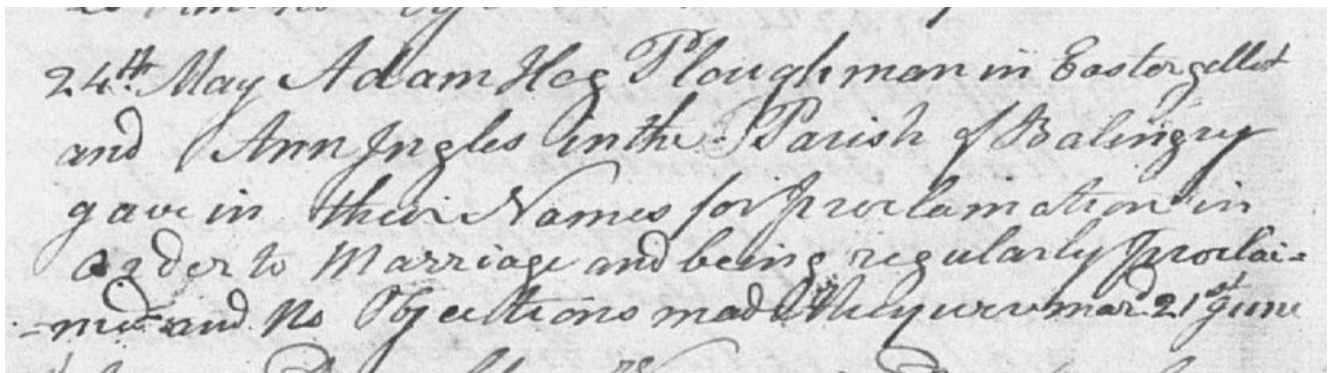 24th May Adam Hog Ploughman in Eastergellet
and Ann Ingles in the Parish of Balingry
gave in their Names for proclamation in
order to Marriage and being regularly proclai=
=med and No Objections made they were mard. 21st June